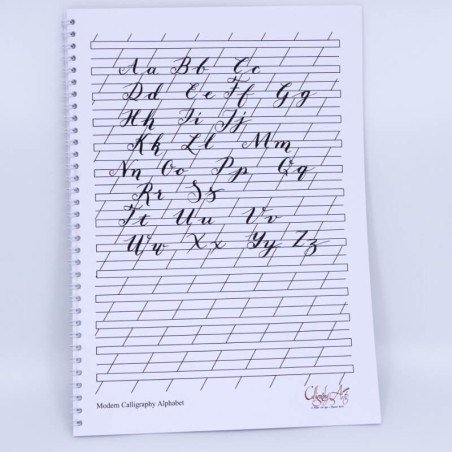 Aa Bb Cc
Dd Ee Ff Gg
Hh Ii Jj
Kk Ll Mm
Nn Oo Pp Qq
Rr Ss
Tt Uu Vv
Ww Xx Yy Zz
Modern Calligraphy Alphabet